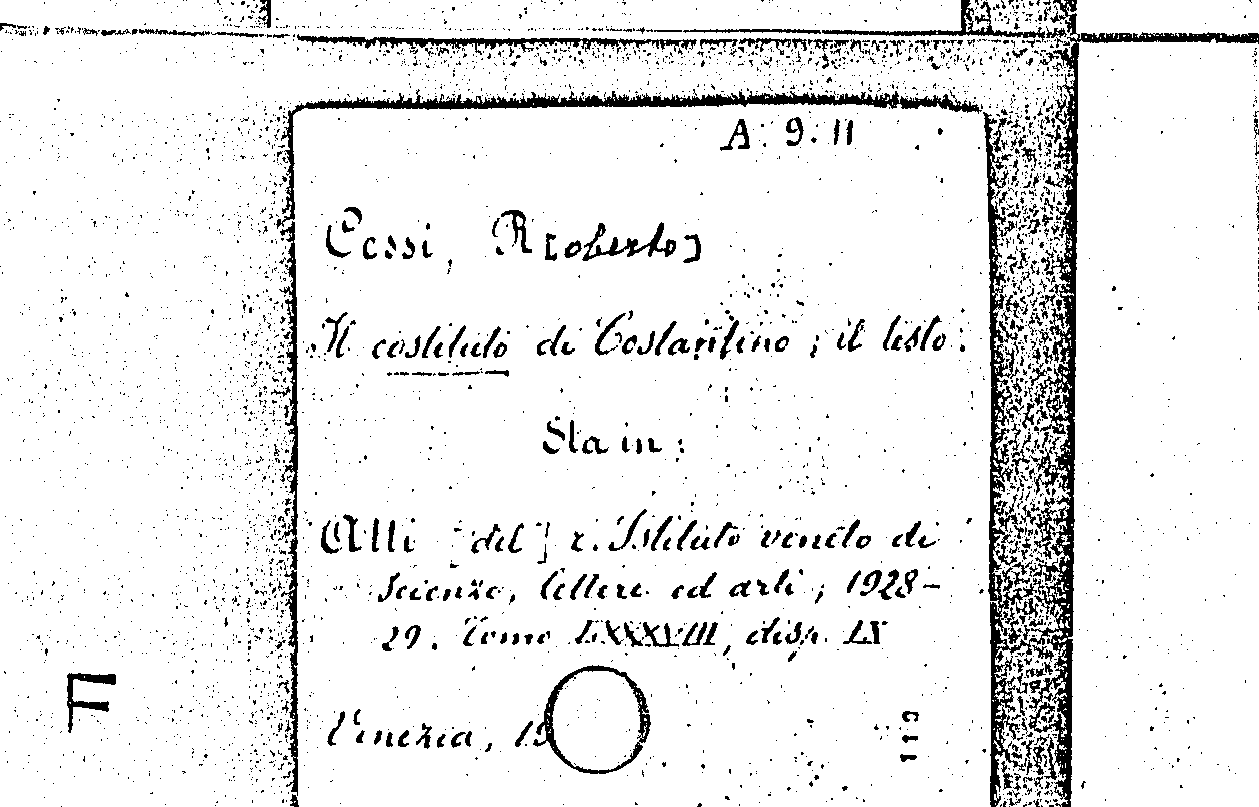 A. 9. 11
Cessi, R[oberto]
Il costituto di Costantino; il testo.
Sta in:
Atti [del] r. Istituto veneto di
scienze, lettere ed arti; 1928-
29. Tomo LXXXVIII, disp. IX
F
Venezia, 19
119